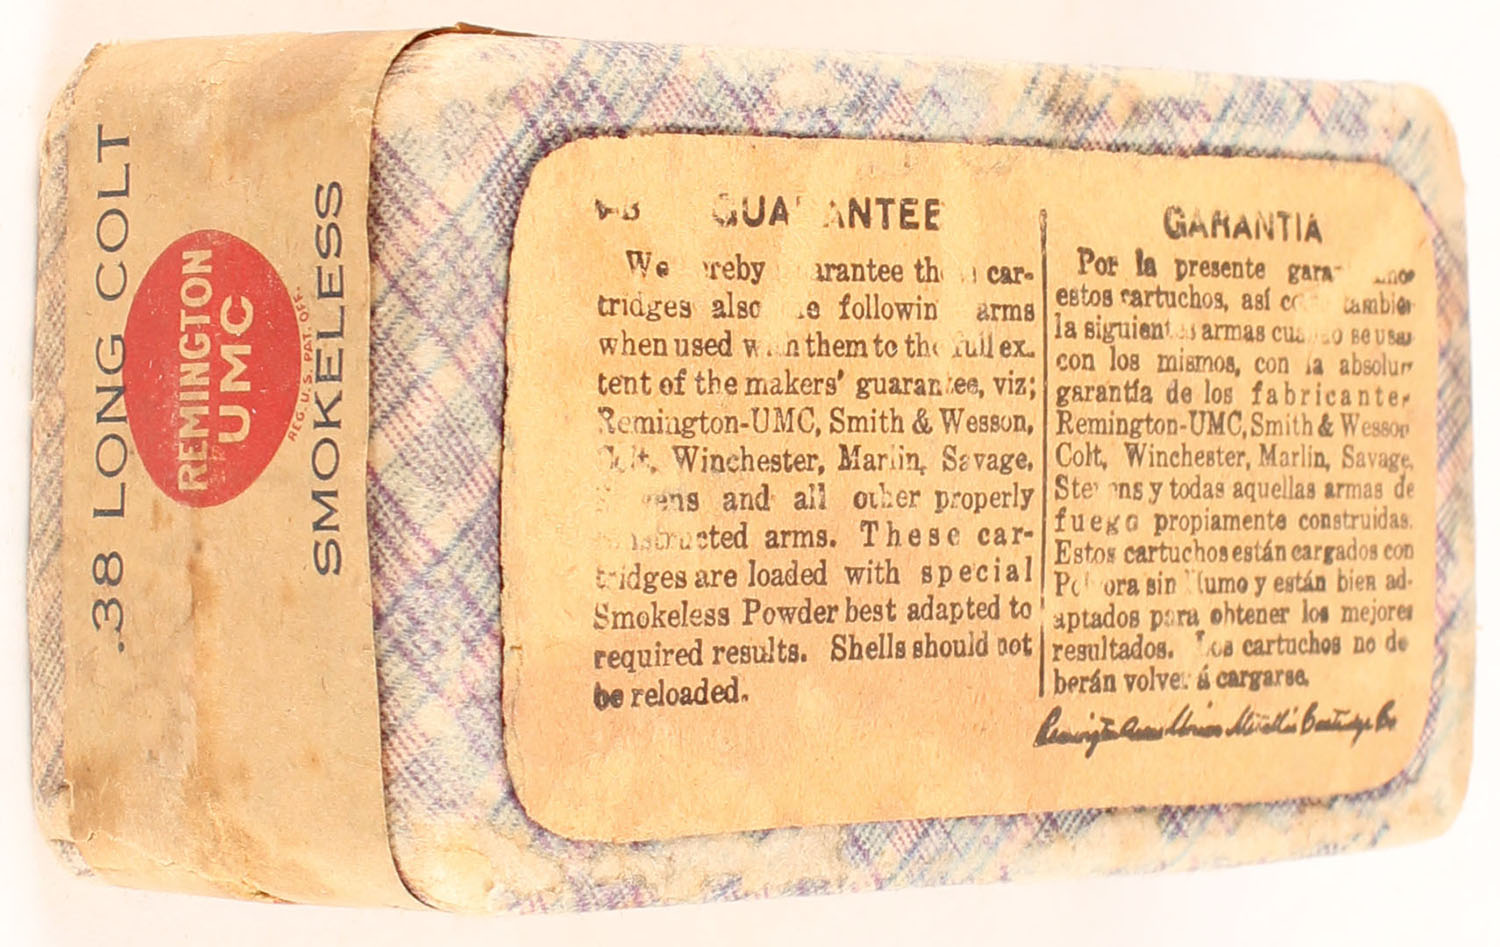 .38 LONG COLT
REMINGTON
UMC
REG. U.S. PAT. OFF.
SMOKELESS
GUARANTEE
We hereby guarantee these car-
tridges also the following arms
when used with them to the full ex-
tent of the makers' guarantee, viz;
Remington-UMC, Smith & Wesson,
Colt, Winchester, Marlin, Savage,
Stevens and all other properly
constructed arms. These car-
tridges are loaded with special
Smokeless Powder best adapted to
required results. Shells should not
be reloaded.
GARANTIA
Por la presente garantizamos
estos cartuchos, así como tambien
la siguientes armas cuando se usan
con los mismos, con la absoluta
garantía de los fabricantes
Remington-UMC, Smith & Wesson
Colt, Winchester, Marlin, Savage,
Stevens y todas aquellas armas de
fuego propiamente construidas.
Estos cartuchos están cargados con
Polvora sin Humo y están bien ad-
aptados para obtener los mejores
resultados. Los cartuchos no de
berán volver á cargarse.
Remington Arms Union Metallic Cartridge Co